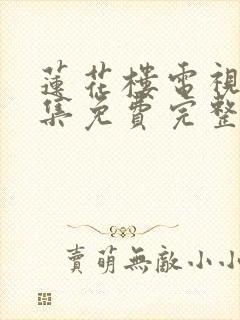 蓮花樓電視
集免費完整
賣萌無敵小小